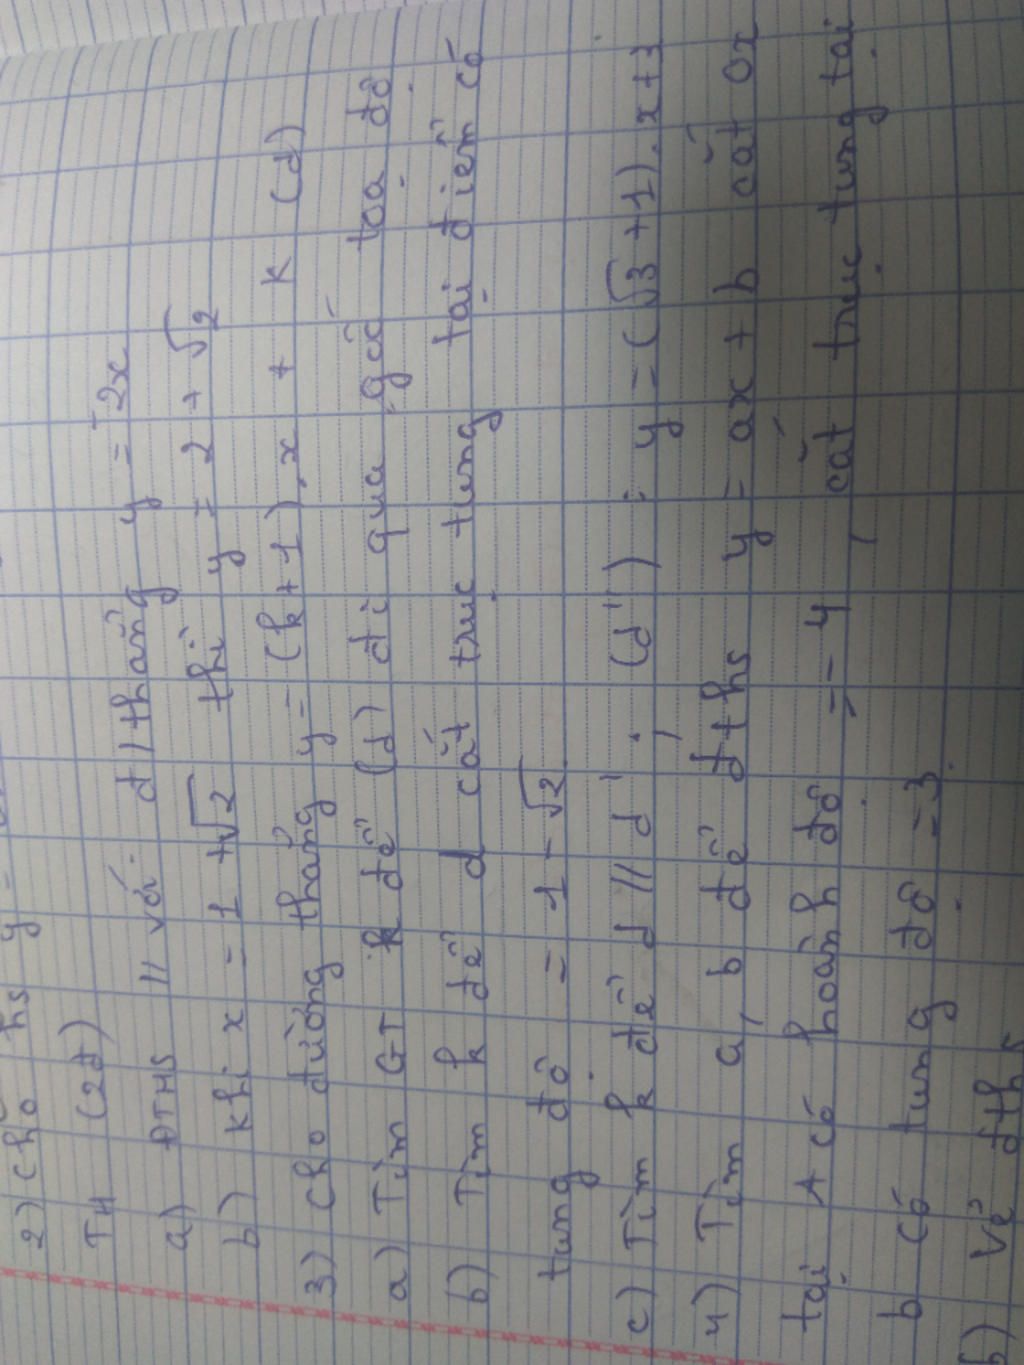 2) Cho hs y =
TH (2đ)
a) ĐTHS // với đ/thẳng y = -2x
b) Khi x = 1 + √2 thì y = 2 + √2
3) Cho đường thẳng y = (k+1).x + k (d)
a) Tìm GT k để (d) đi qua gốc toạ độ
b) Tìm k để d cắt trục tung tại điểm có
tung độ = 1 - √2
c) Tìm k để d // d' : (d') : y = (√3 + 1).x + 3
4) Tìm a, b để đths y = ax + b cắt ox
tại A có hoành độ = -4, cắt trục tung tại
b có tung độ = 3.
b) Vẽ đths